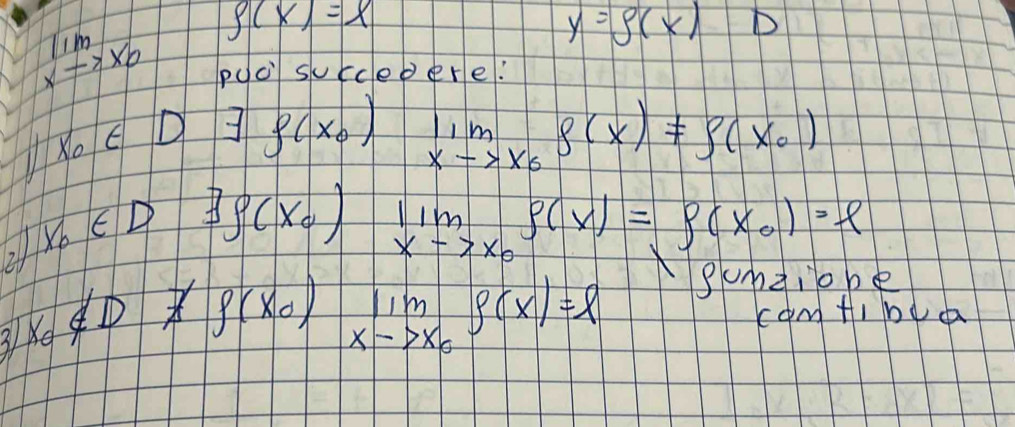 lim x->x0 f(x)=l y=f(x) D
può succedere:
1) x0 ∈ D ∃ f(x0) lim x->x0 f(x) ≠ f(x0)
2) x0 ∈ D ∃ f(x0) lim x->x0 f(x) = f(x0) = l
funzione
continua
3) x0 ∉ D ∄ f(x0) lim x->x0 f(x)=l